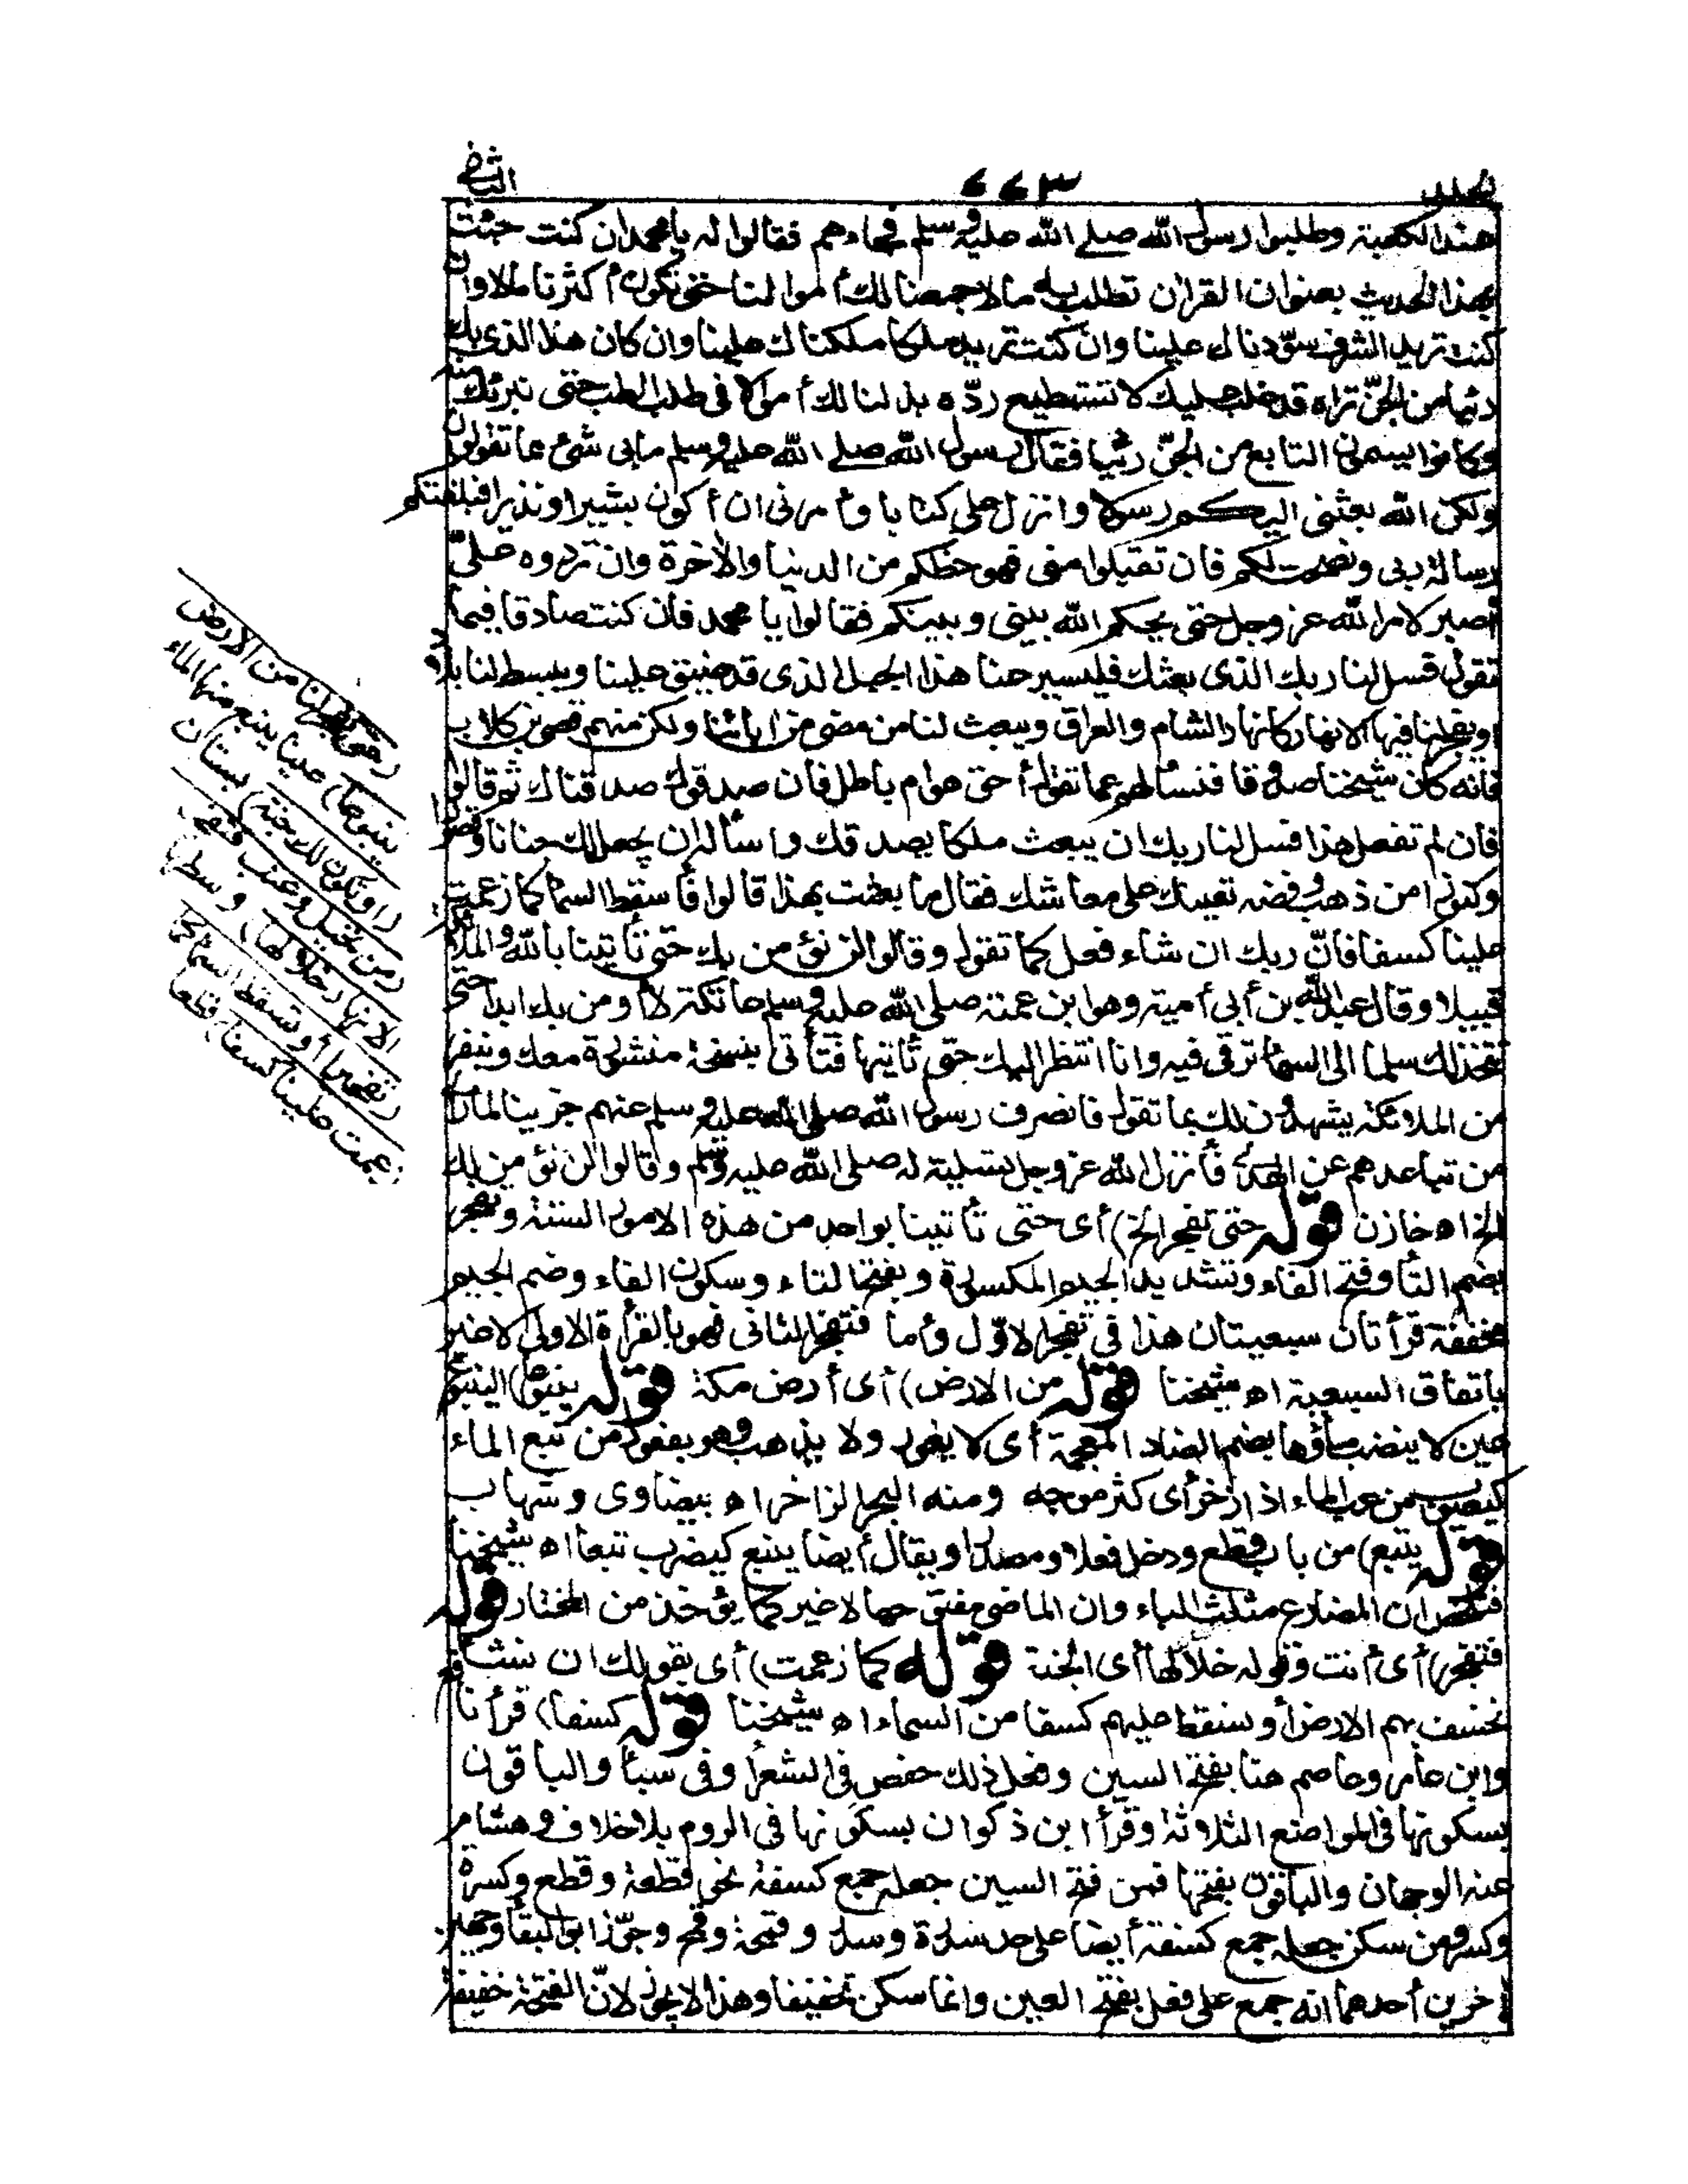 الجلد ٦٦٣ الثاني
عند الكعبة وطلبوا رسول الله صلى الله عليه وسلم فجاءهم فقالوا له يا محمد ان كنت جئت
بهذا الحديث بعنوان القران تطلب به مالا جمعنا لك أموالنا حتى تكون أكثرنا مالا وان
كنت تريد الشرف سوّدناك علينا وان كنت تريد ملكا ملكناك علينا وان كان هذا الذى بك
رئيا من الجنّ تراه قد غلب عليك لا تستطيع ردّه بذلنا لك أموالا فى طلب الطب حتى نبرئك منه
وكانوا يسمون التابع من الجنّ رئيا فقال رسول الله صلى الله عليه وسلم ما بى شئ مما تقولون
ولكن الله بعثنى اليكم رسولا وانزل على كتابا وأمرنى ان أكون بشيرا ونذيرا فبلغتكم
رسالة ربى ونصحت لكم فان تقبلوا منى فهو حظكم من الدنيا والأخرة وان تردوه علىّ
أصبر لامر الله عز وجل حتى يحكم الله بينى وبينكم فقالوا يا محمد فان كنت صادقا فيما
تقول فسل لنا ربك الذى بعثك فليسير عنا هذا الجبل الذى قد ضيق علينا ويبسط لنا بلادنا
ويفجر لنا فيها الانهار كانهار الشام والعراق ويبعث لنا من مضى من ابائنا ولكن منهم قصى بن كلاب
فانه كان شيخنا صدوقا فنسألهم عما تقول أحق هو ام باطل فان صدقوك صدقناك ثم قالوا
فان لم تفعل هذا فسل لنا ربك ان يبعث ملكا يصدقك واسأله ان يجعل لك جنانا وقصورا
وكنوزا من ذهب وفضة تعينك على معاشك فقال ما بعثت بهذا قالوا فأسقط السماء كما زعمت
علينا كسفا فانّ ربك ان شاء فعل كما تقول وقالوا لن نؤمن بك حتى تأتينا بالله والملائكة
قبيلا وقال عبد الله بن أبى أمية وهو ابن عمته صلى الله عليه وسلم عاتكة لا أومن بك ابدا حتى
تتخذ لك سلما الى السماء ترقى فيه وانا انظر اليك حتى تاتيها فتأتى بنسخة منشورة معك ونفر
من الملائكة يشهدون لك بما تقول فانصرف رسول الله صلى الله عليه وسلم عنهم حزينا لما رأى
من تباعدهم عن الهدى فأنزل الله عز وجل تسلية له صلى الله عليه وسلم وقالوا لن نؤمن بك
الخ اه خازن قوله حتى تفجر الخ) أى حتى تأتينا بواحد من هذه الامور الستة وتفجر
بضم التاء وفتح الفاء وتشديد الجيم المكسورة وبفتح التاء وسكون الفاء وضم الجيم
مخففة قرأتان سبعيتان هذا فى تفجر الاوّل وأما فتفجر الثانى فهو بالقرأة الاولى لا غير
باتفاق السبعية اه شيخنا قوله من الارض) أى أرض مكة قوله ينبوعا) الينبوع
عين لا ينضب ماؤها بضم الضاد المعجمة أى لا يغور ولا يذهب وهو يفعول من نبع الماء
كيعبوب من عب الماء اذا زخر أى كثر موجه ومنه البحر الزاخر اه بيضاوى وشهاب
قوله ينبع) من باب قطع ودخل فعلا ومصدرا ويقال أيضا ينبع كيضرب نبعا اه شيخنا
فتلخص ان المضارع مثلث الباء وان الماضى مفتوحها لا غير كما يؤخذ من المختار قوله
فتفجر) أى أنت وقوله خلالها أى الجنة قوله كما زعمت) أى بقولك ان نشأ
نخسف بهم الارض أو نسقط عليهم كسفا من السماء اه شيخنا قوله كسفا) قرأ نافع
وابن عامر وعاصم هنا بفتح السين وفعل ذلك حفص فى الشعرأ وفى سبأ والباقون
بسكونها فى المواضع الثلاثة وقرأ ابن ذكوان بسكونها فى الروم بلا خلاف وهشام
عنه الوجهان والباقون بفتحها فمن فتح السين جعله جمع كسفة نحو قطعة وقطع وكسرة
وكسر ومن سكن جعله جمع كسفة أيضا على حد سدرة وسدر وقمحة وقمح وجوّز ابو البقاء وجهين
اخرين أحدهما انه جمع على فعل بفتح العين وانما سكن تخفيفا وهذا لا يجوز لانّ الفتحة خفيفة
لنا من الارض
ينبوعا) عينا ينبع منها الماء
(أو تكون لك جنة) بستان
(من نخيل وعنب فتفجر
الانهار خلالها) وسطها
(تفجيرا أو تسقط السماء كما
زعمت علينا كسفا) قطعا